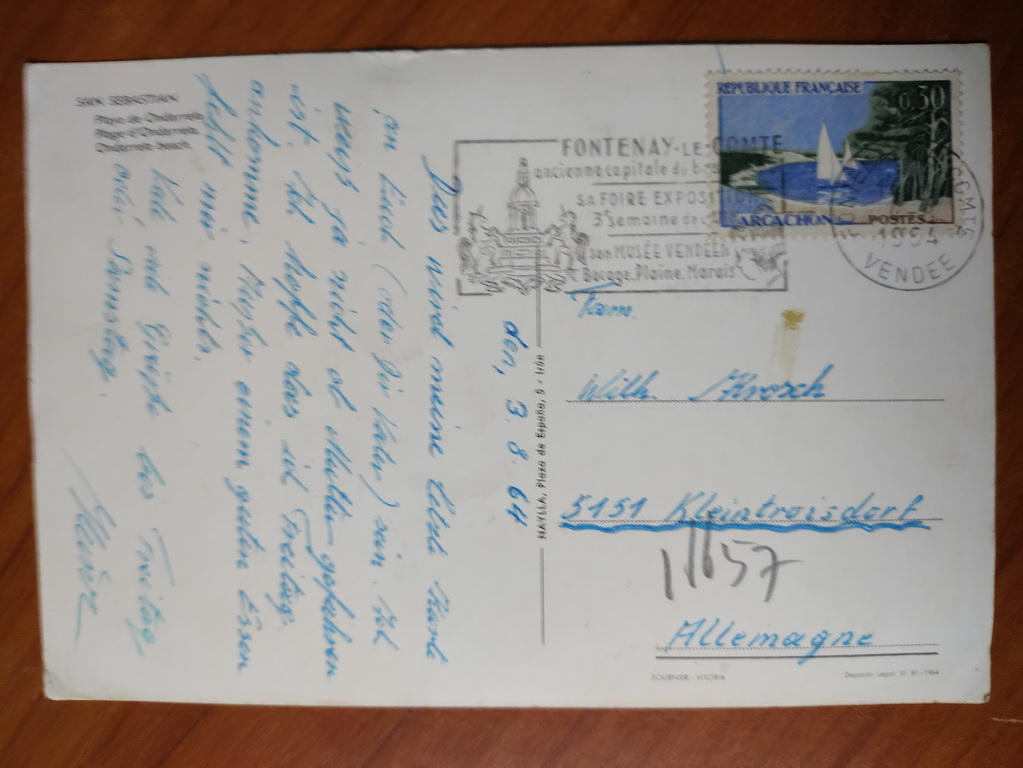 SAN SEBASTIAN
Playa de Ondarreta
Plage d'Ondarreta
Ondarreta beach.
den, 3. 8. 64
Dies wird meine letzte Karte
an Euch (oder Dir Vater) sein. Ich
weiß ja nicht ob Mutti gefahren
ist. Ich hoffe das ich Freitag
ankomme, Außer einem guten Essen
fehlt mir nichts.
Viele Grüße bis Freitag
oder Samstag.
FONTENAY-LE-COMTE
ancienne capitale du b
SA FOIRE EXPOSITION
3e semaine de
son MUSÉE VENDÉEN
Bocage, Plaine, Marais
REPUBLIQUE FRANÇAISE
0,30
ARCACHON
POSTES
1964
VENDEE
Fam.
Wilh.
5151 Kleintroisdorf
57
Allemagne
NAYLLA, Plaza de España, 5 - Irún
FOURNIER - VITORIA
Depósito Legal: VI. 81 - 1964